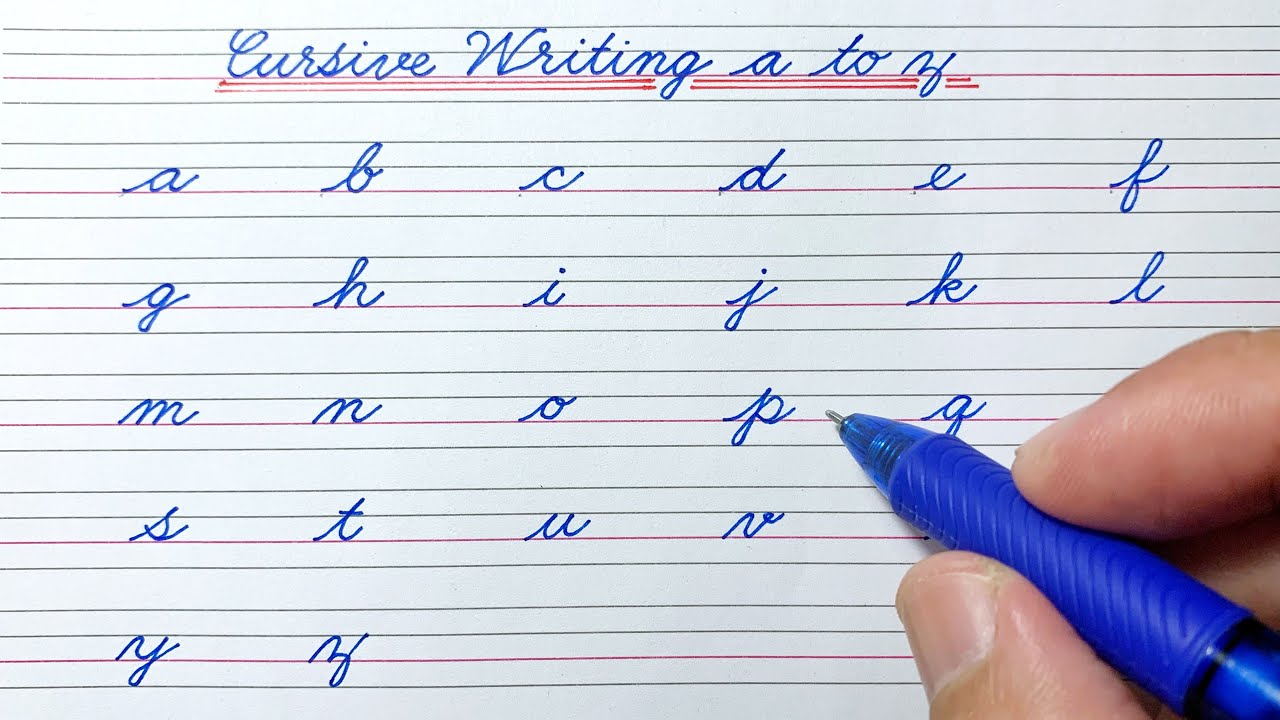 Cursive Writing a to z
a b c d e f
g h i j k l
m n o p q
s t u v
y z